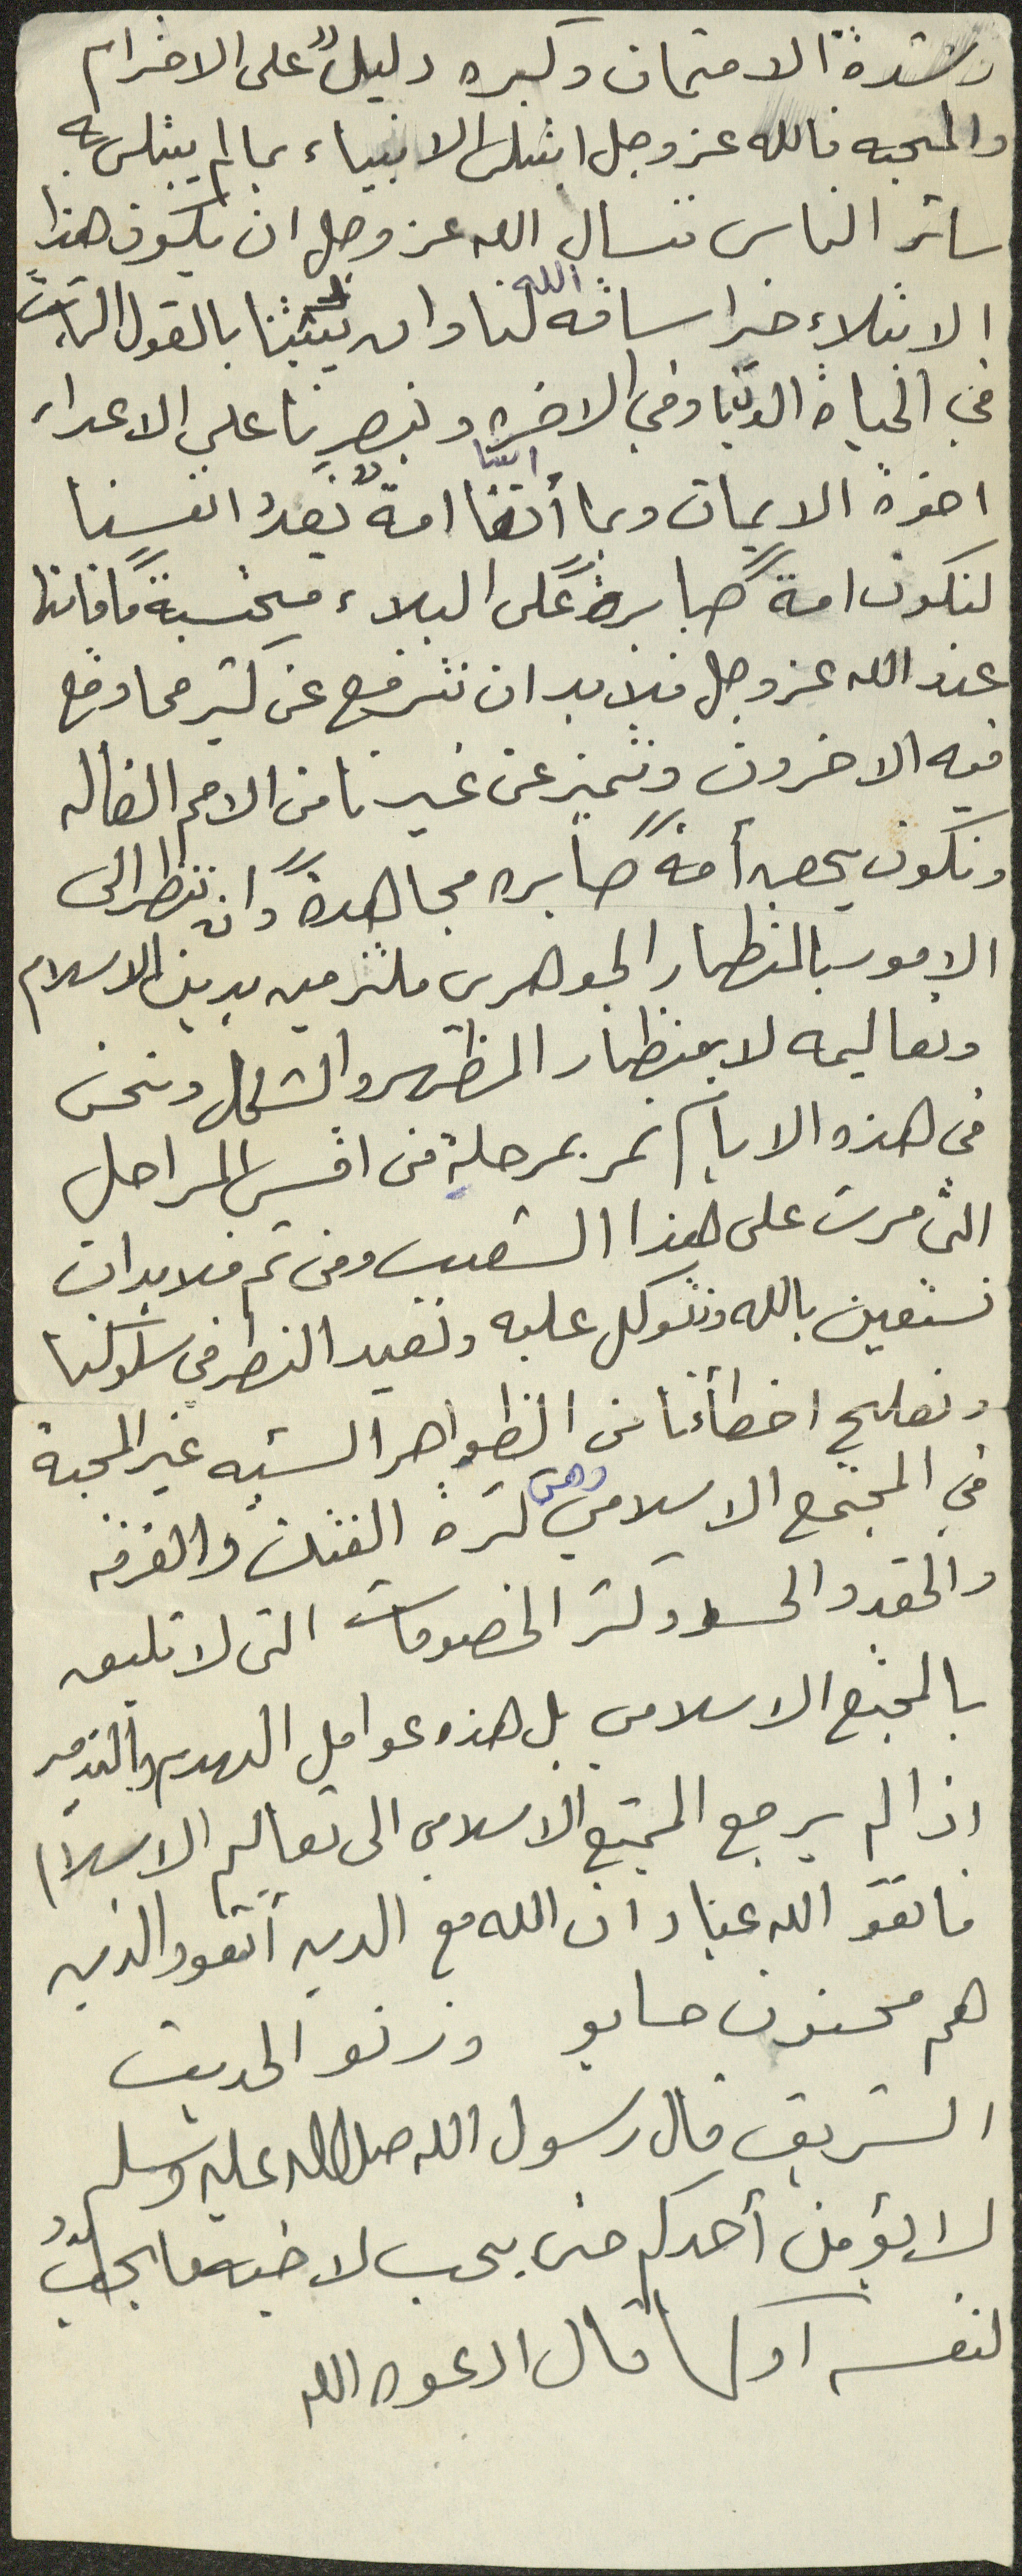 وشدة الامتحان وكبره دليلٌ على الاخرام
والمحبه فالله عز وجل ابتلى الانبياء بما لم يبتلى به
سائر الناس نسال الله عز وجل ان يكون هذا
الابتلاء خيرا ساقه الله لنا وان يثبتنا بالقول الثابت
في الحياة الدنيا وفي الاخره وينصرنا على الاعداء
اخوة الايمان وبما أننا امةٌ نعدُ انفسنا
لنكون امةً صابرةً على البلاء محتسبةً مافاتها
عند الله عز وجل فلابد ان نترفع عن كثير مما وقع
فيه الاخرون ونتميز عن غيرنا من الامم الضاله
ونكون بحق أمةً صابره مجاهدةً وان ننظر الى
الامور بالمنظار الجوهرى ملتزمين بدين الاسلام
وتعاليمه لا بمنظار المظهر والشكل ونحن
في هذه الايام نمر بمرحلةٍ من اقسى المراحل
التى مرت على هذا الشعب ومن ثم فلابد ان
نستعين بالله ونتوكل عليه ونعيد النظر في سلوكنا
ونصلح اخطأنا من الظواهر السئيه غير المحبة
في المجتمع الاسلامي وهى كثرة الفتن والفرقه
والحقد والحسد وكثر الخصومات التى لا تليق
بالمجتمع الاسلامي بل هذه عوامل الهدم والتدمير
اذا لم يرجع المجتمع الاسلامى الى تعاليم الاسلام
فاتقو الله عباد ان الله مع الدين أتقوا والذين
هم محسنون حابو وزنو الحديث
الشريف قال رسول الله صلى الله عليه وسلم
لا يؤمن أحدكم حتى يحب لاخيه ما يحبُ
لنفسه او كما قال ادعوه الله